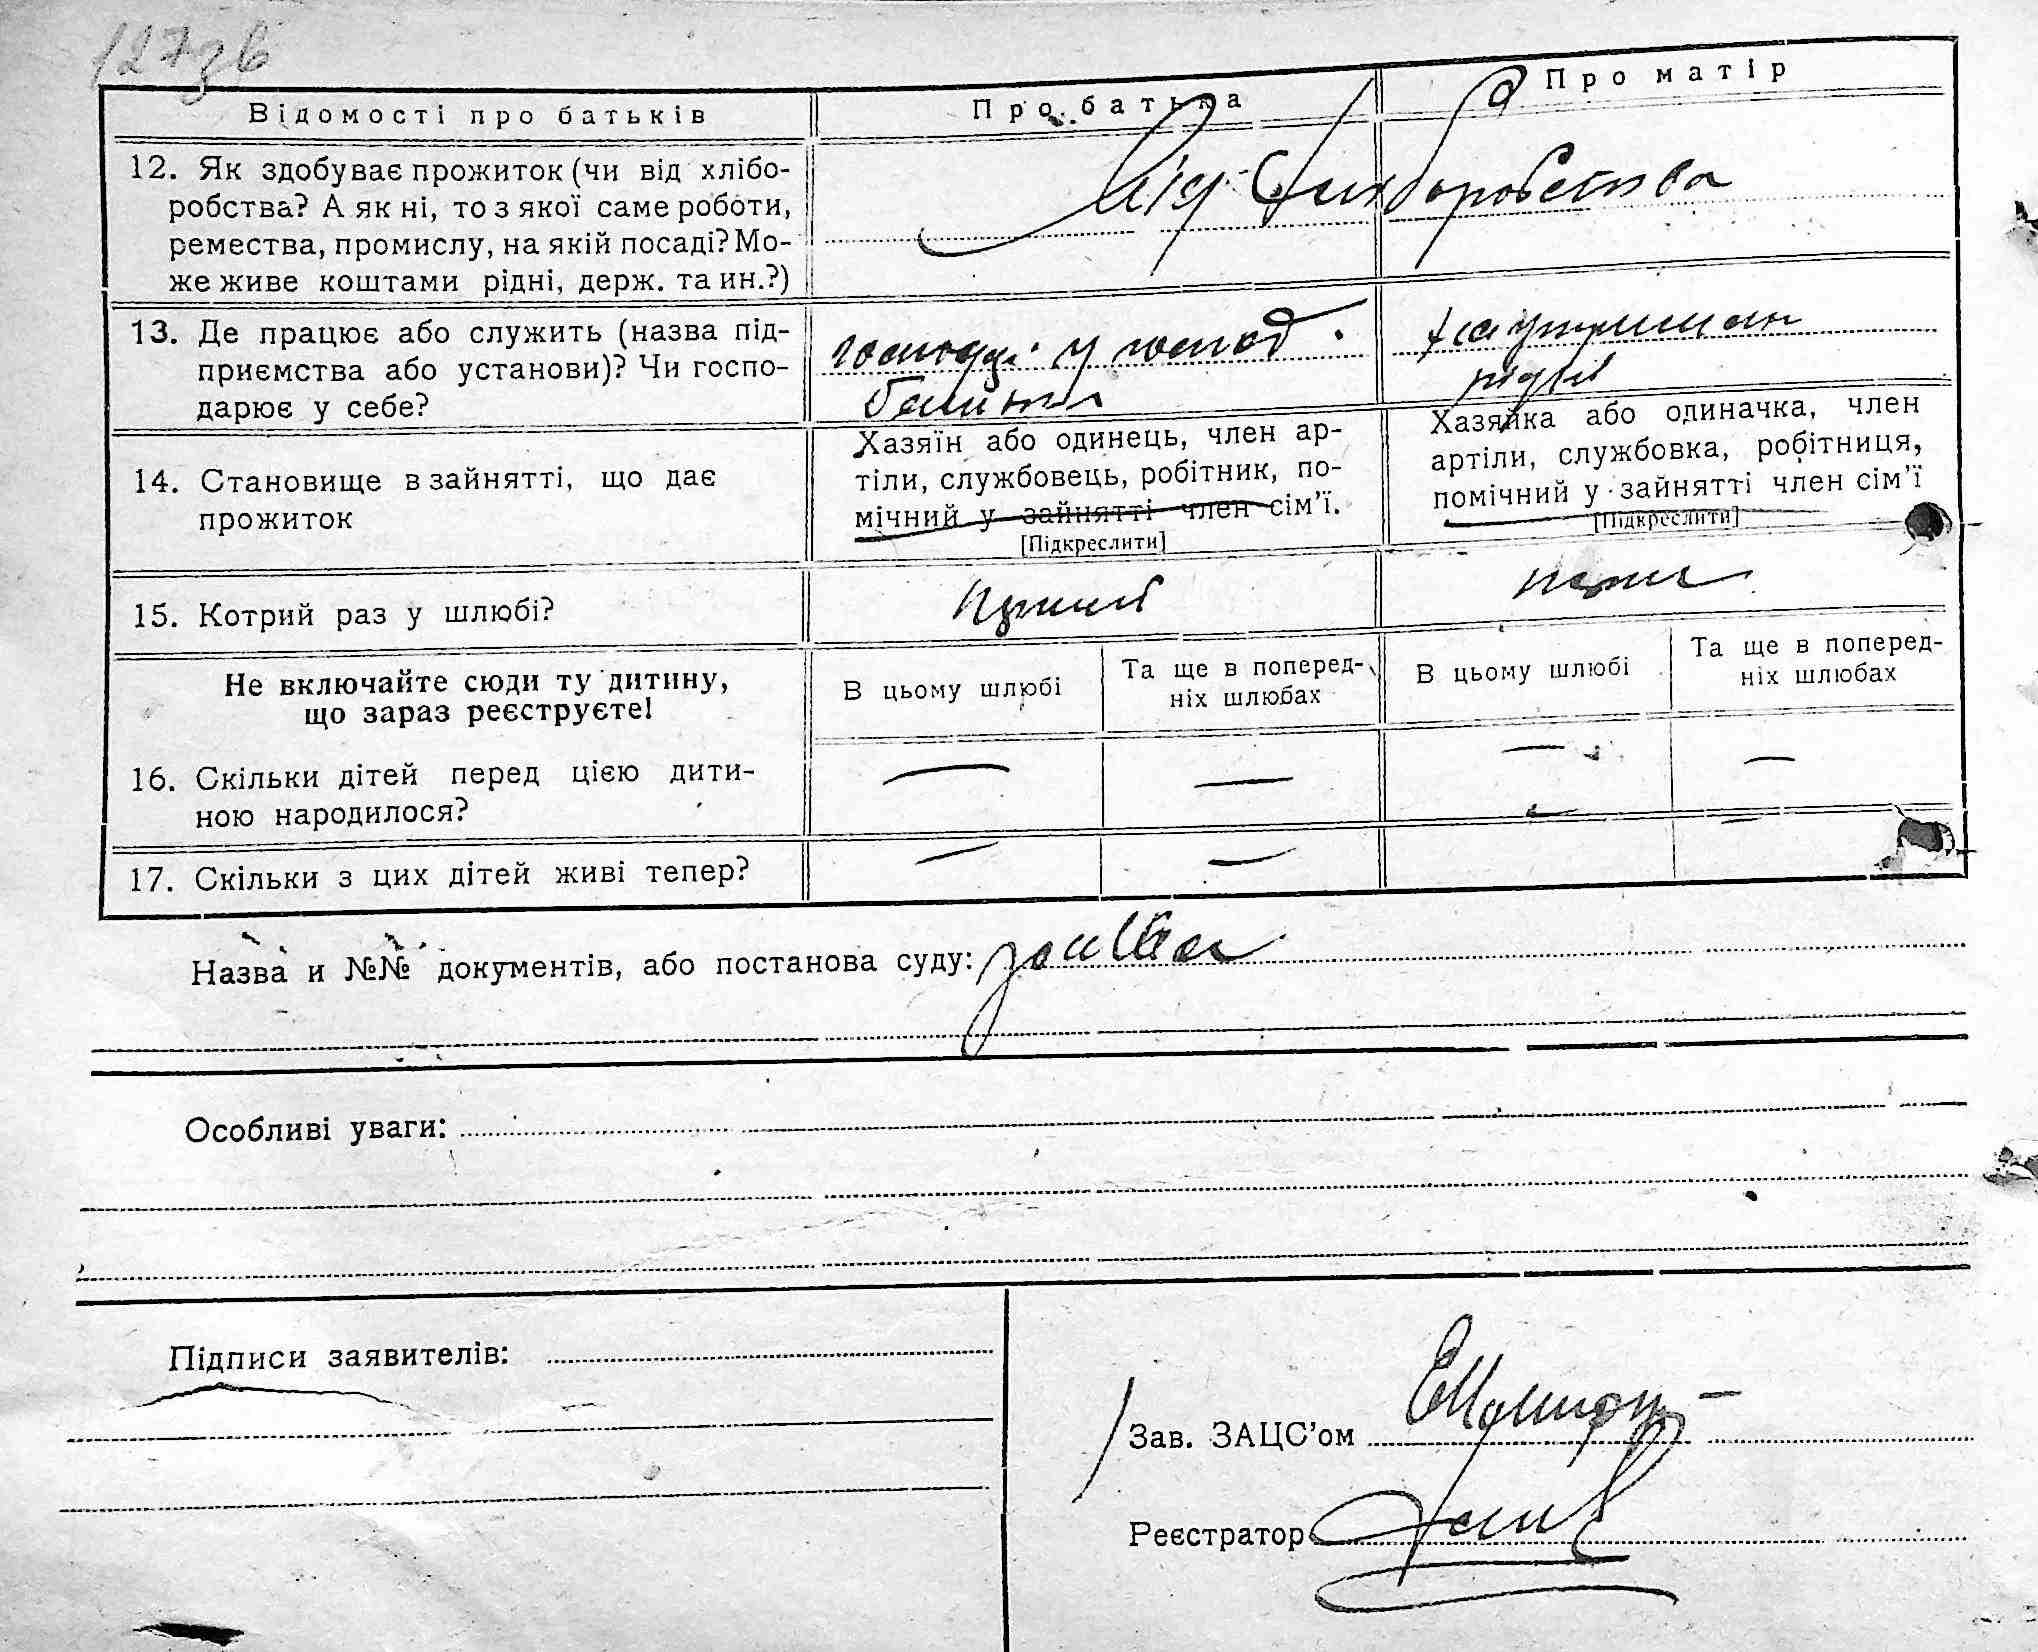 127зв
Відомості про батьків
Про батька
Про матір
12. Як здобуває прожиток (чи від хлібо-
робства? А як ні, то з якої саме роботи,
ремества, промислу, на якій посаді? Мо-
же живе коштами рідні, держ. та ин.?)
Від хліборобства
13. Де працює або служить (назва під-
приємства або установи)? Чи госпо-
дарює у себе?
у господ.
батька
14. Становище в зайнятті, що дає
прожиток
Хазяїн або одинець, член ар-
тіли, службовець, робітник, по-
мічний у зайнятті член сім'ї.
[Підкреслити]
Хазяйка або одиначка, член
артіли, службовка, робітниця,
помічний у зайнятті член сім'ї
[Підкреслити]
15. Котрий раз у шлюбі?
Не включайте сюди ту дитину,
що зараз реєструєте!
В цьому шлюбі
Та ще в поперед-
ніх шлюбах
В цьому шлюбі
Та ще в поперед-
ніх шлюбах
16. Скільки дітей перед цією дити-
ною народилося?
— — — —
17. Скільки з цих дітей живі тепер?
— — — —
Назва и №№ документів, або постанова суду: заява
Особливі уваги:
Підписи заявителів:
Зав. ЗАЦС'ом
Реєстратор